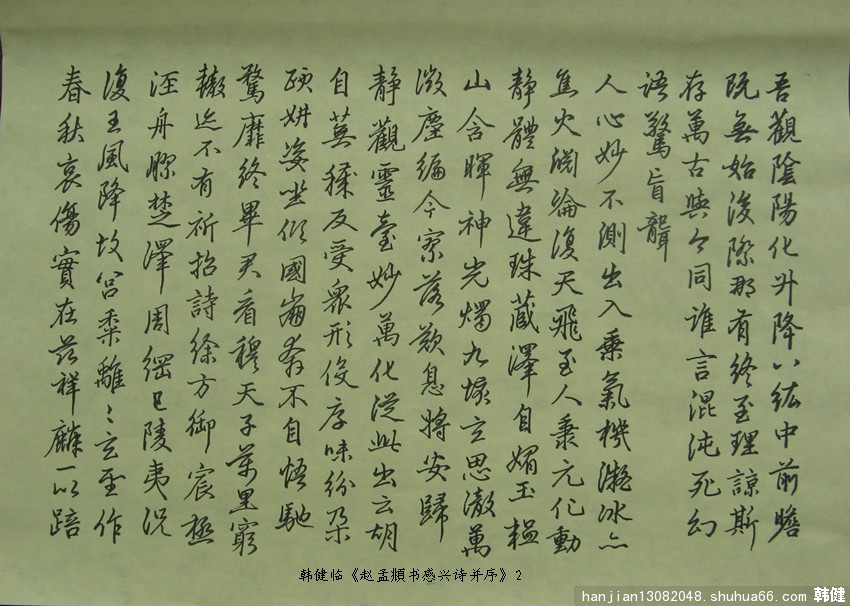 吾觀陰陽化升降八紘中前瞻
既無始後際那有終至理諒斯
存萬古與今同誰言混沌死幻
語驚盲聾
人心妙不測出入乘氣機凝冰亦
焦火淵淪復天飛至人秉元化動
靜體無違珠藏澤自媚玉韞
山含暉神光燭九垓玄思澈萬
微塵編今寥落歎息將安歸
靜觀靈臺妙萬化從此出云胡
自蕪穢反受衆形役厚味紛朵
頤妍姿坐傾國崩奔不自悟馳
驚靡終畢君看穆天子萬里窮
轍迹不有祈招詩徐方御宸極
涇舟膠楚澤周綱已陵夷況
復王風降故宮黍離〻玄聖作
春秋哀傷實在茲祥麟一以踣
韩健临《赵孟頫书感兴诗并序》2
hanjian13082048.shuhua66.com 韩健